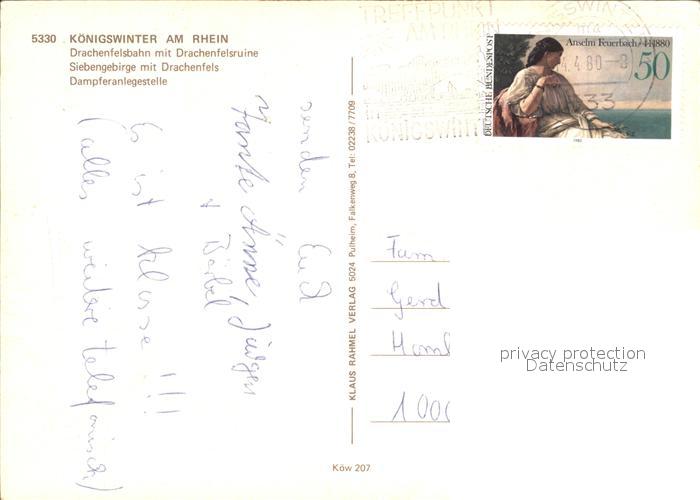 5330 KÖNIGSWINTER AM RHEIN
Drachenfelsbahn mit Drachenfelsruine
Siebengebirge mit Drachenfels
Dampferanlegestelle
TREFFPUNKT
AM RHEIN
KÖNIGSWINT
4.4.80-8
33
Anselm Feuerbach †1880
50
DEUTSCHE BUNDESPOST
1980
Es ist klasse!!!
(alles weitere telefonisch)
senden Euch
Tante Änne, Jürgen
+ Bärbel
KLAUS RAHMEL VERLAG 5024 Pulheim, Falkenweg 8, Tel: 02238/7709
Fam
Gerd
Homb
1000
privacy protection
Datenschutz
Köw 207